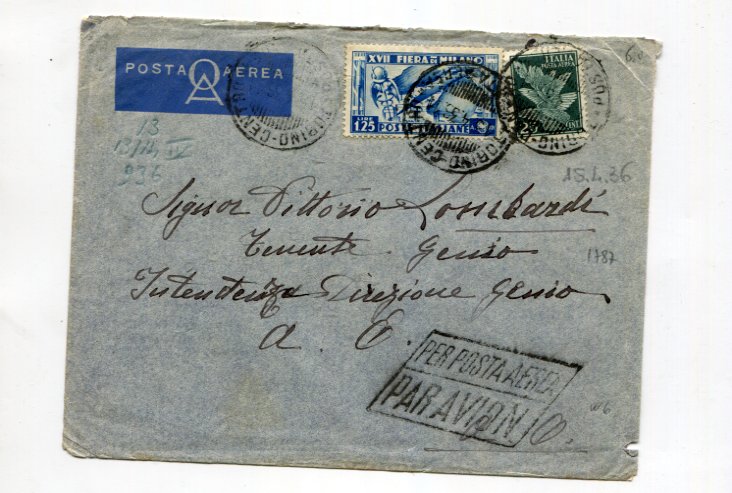 POSTA AEREA
XVII FIERA DI MILANO
LIRE 1.25 POSTE ITALIANE
ITALIA
POSTA AEREA
TORINO-CENTRO
13
13/14 IV
936
15.4.36
Signor Vittorio Lombardi
Tenente Genio
1787
Intendenza Direzione Genio
A. O.
PER POSTA AEREA
PAR AVION